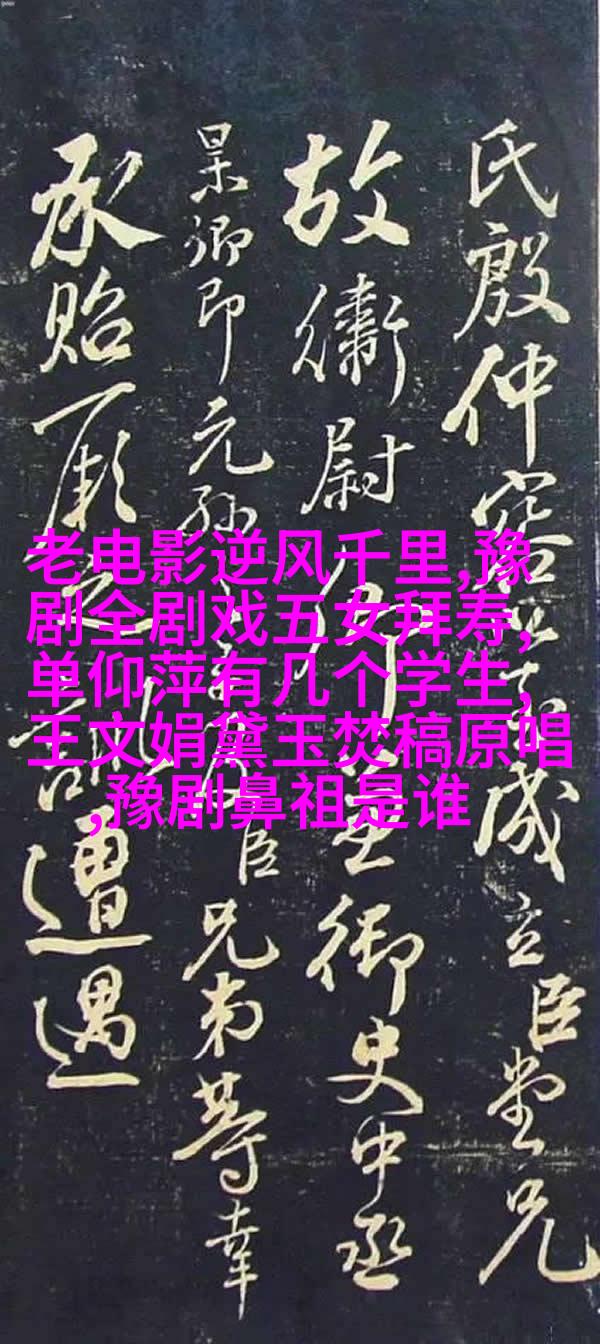 老电影逆风千里,豫
剧全剧戏五女拜寿,
单仰萍有几个学生,
王文娟黛玉焚稿原唱
,豫剧鼻祖是谁
氏殷仲容成立臣堂兄
故衛尉卿兼御史中丞
杲卿即元孫臣兄弟等幸
承貽厥之訓遭遇